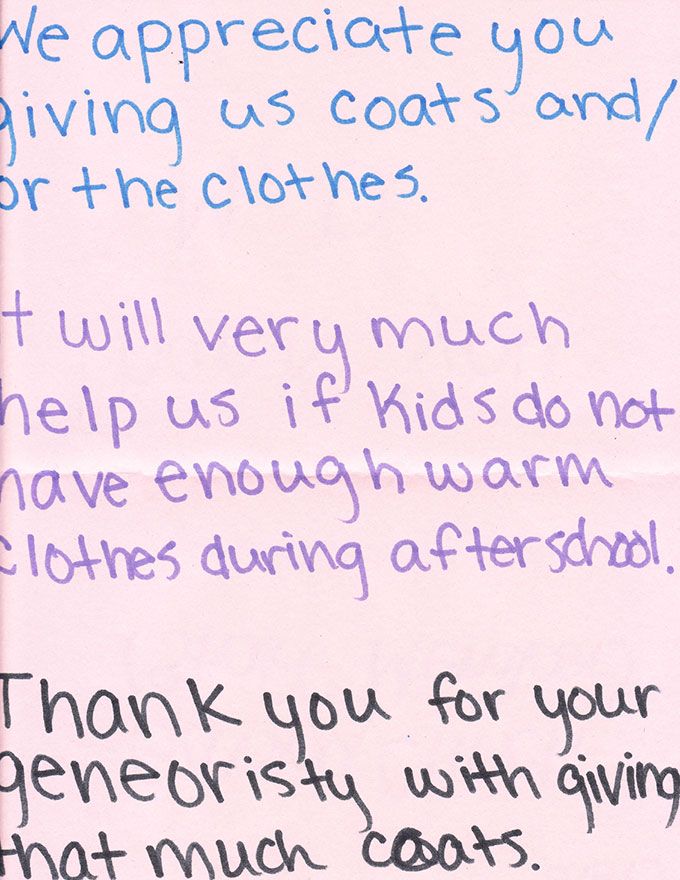 We appreciate you
giving us coats and/
or the clothes.
It will very much
help us if kids do not
have enough warm
clothes during afterschool.
Thank you for your
geneoristy with giving
that much coats.